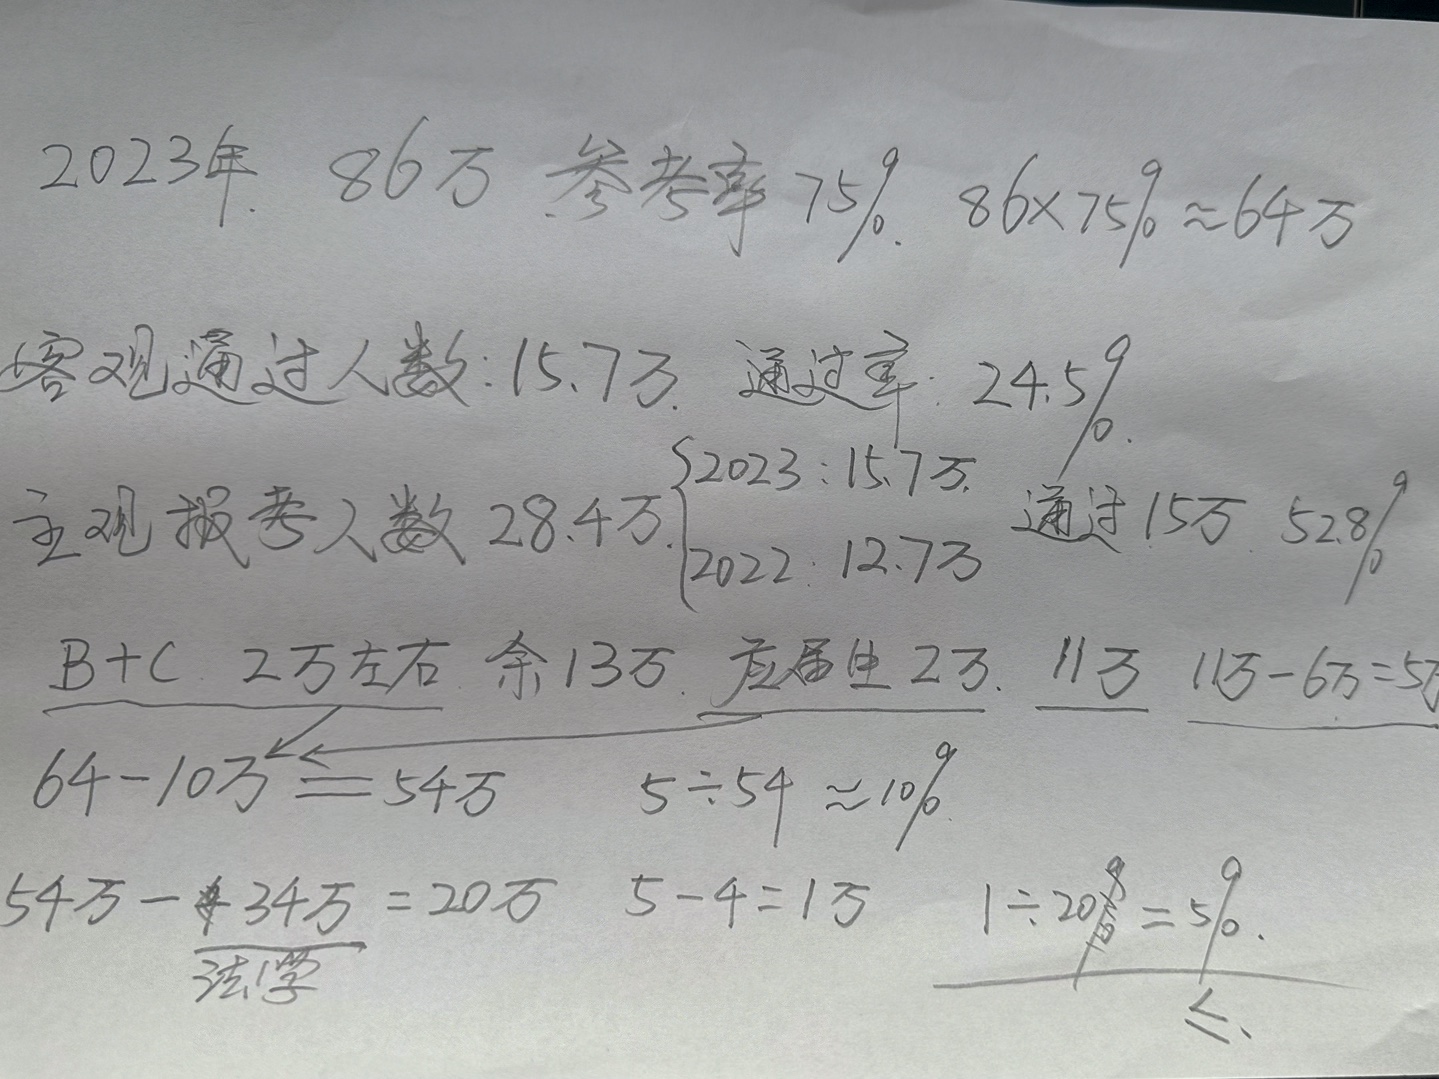 2023年. 86万 参考率75%. 86×75%≈64万
客观通过人数:15.7万. 通过率: 24.5%.
主观报考人数 28.4万. {2023:15.7万. 2022:12.7万 通过15万 52.8%
B+C 2万左右 余13万. 应届生2万. 11万 11万-6万=5万
64-10万=54万 5÷54≈10%
54万-34万=20万 5-4=1万 1÷20=5%.
法学 ≤.